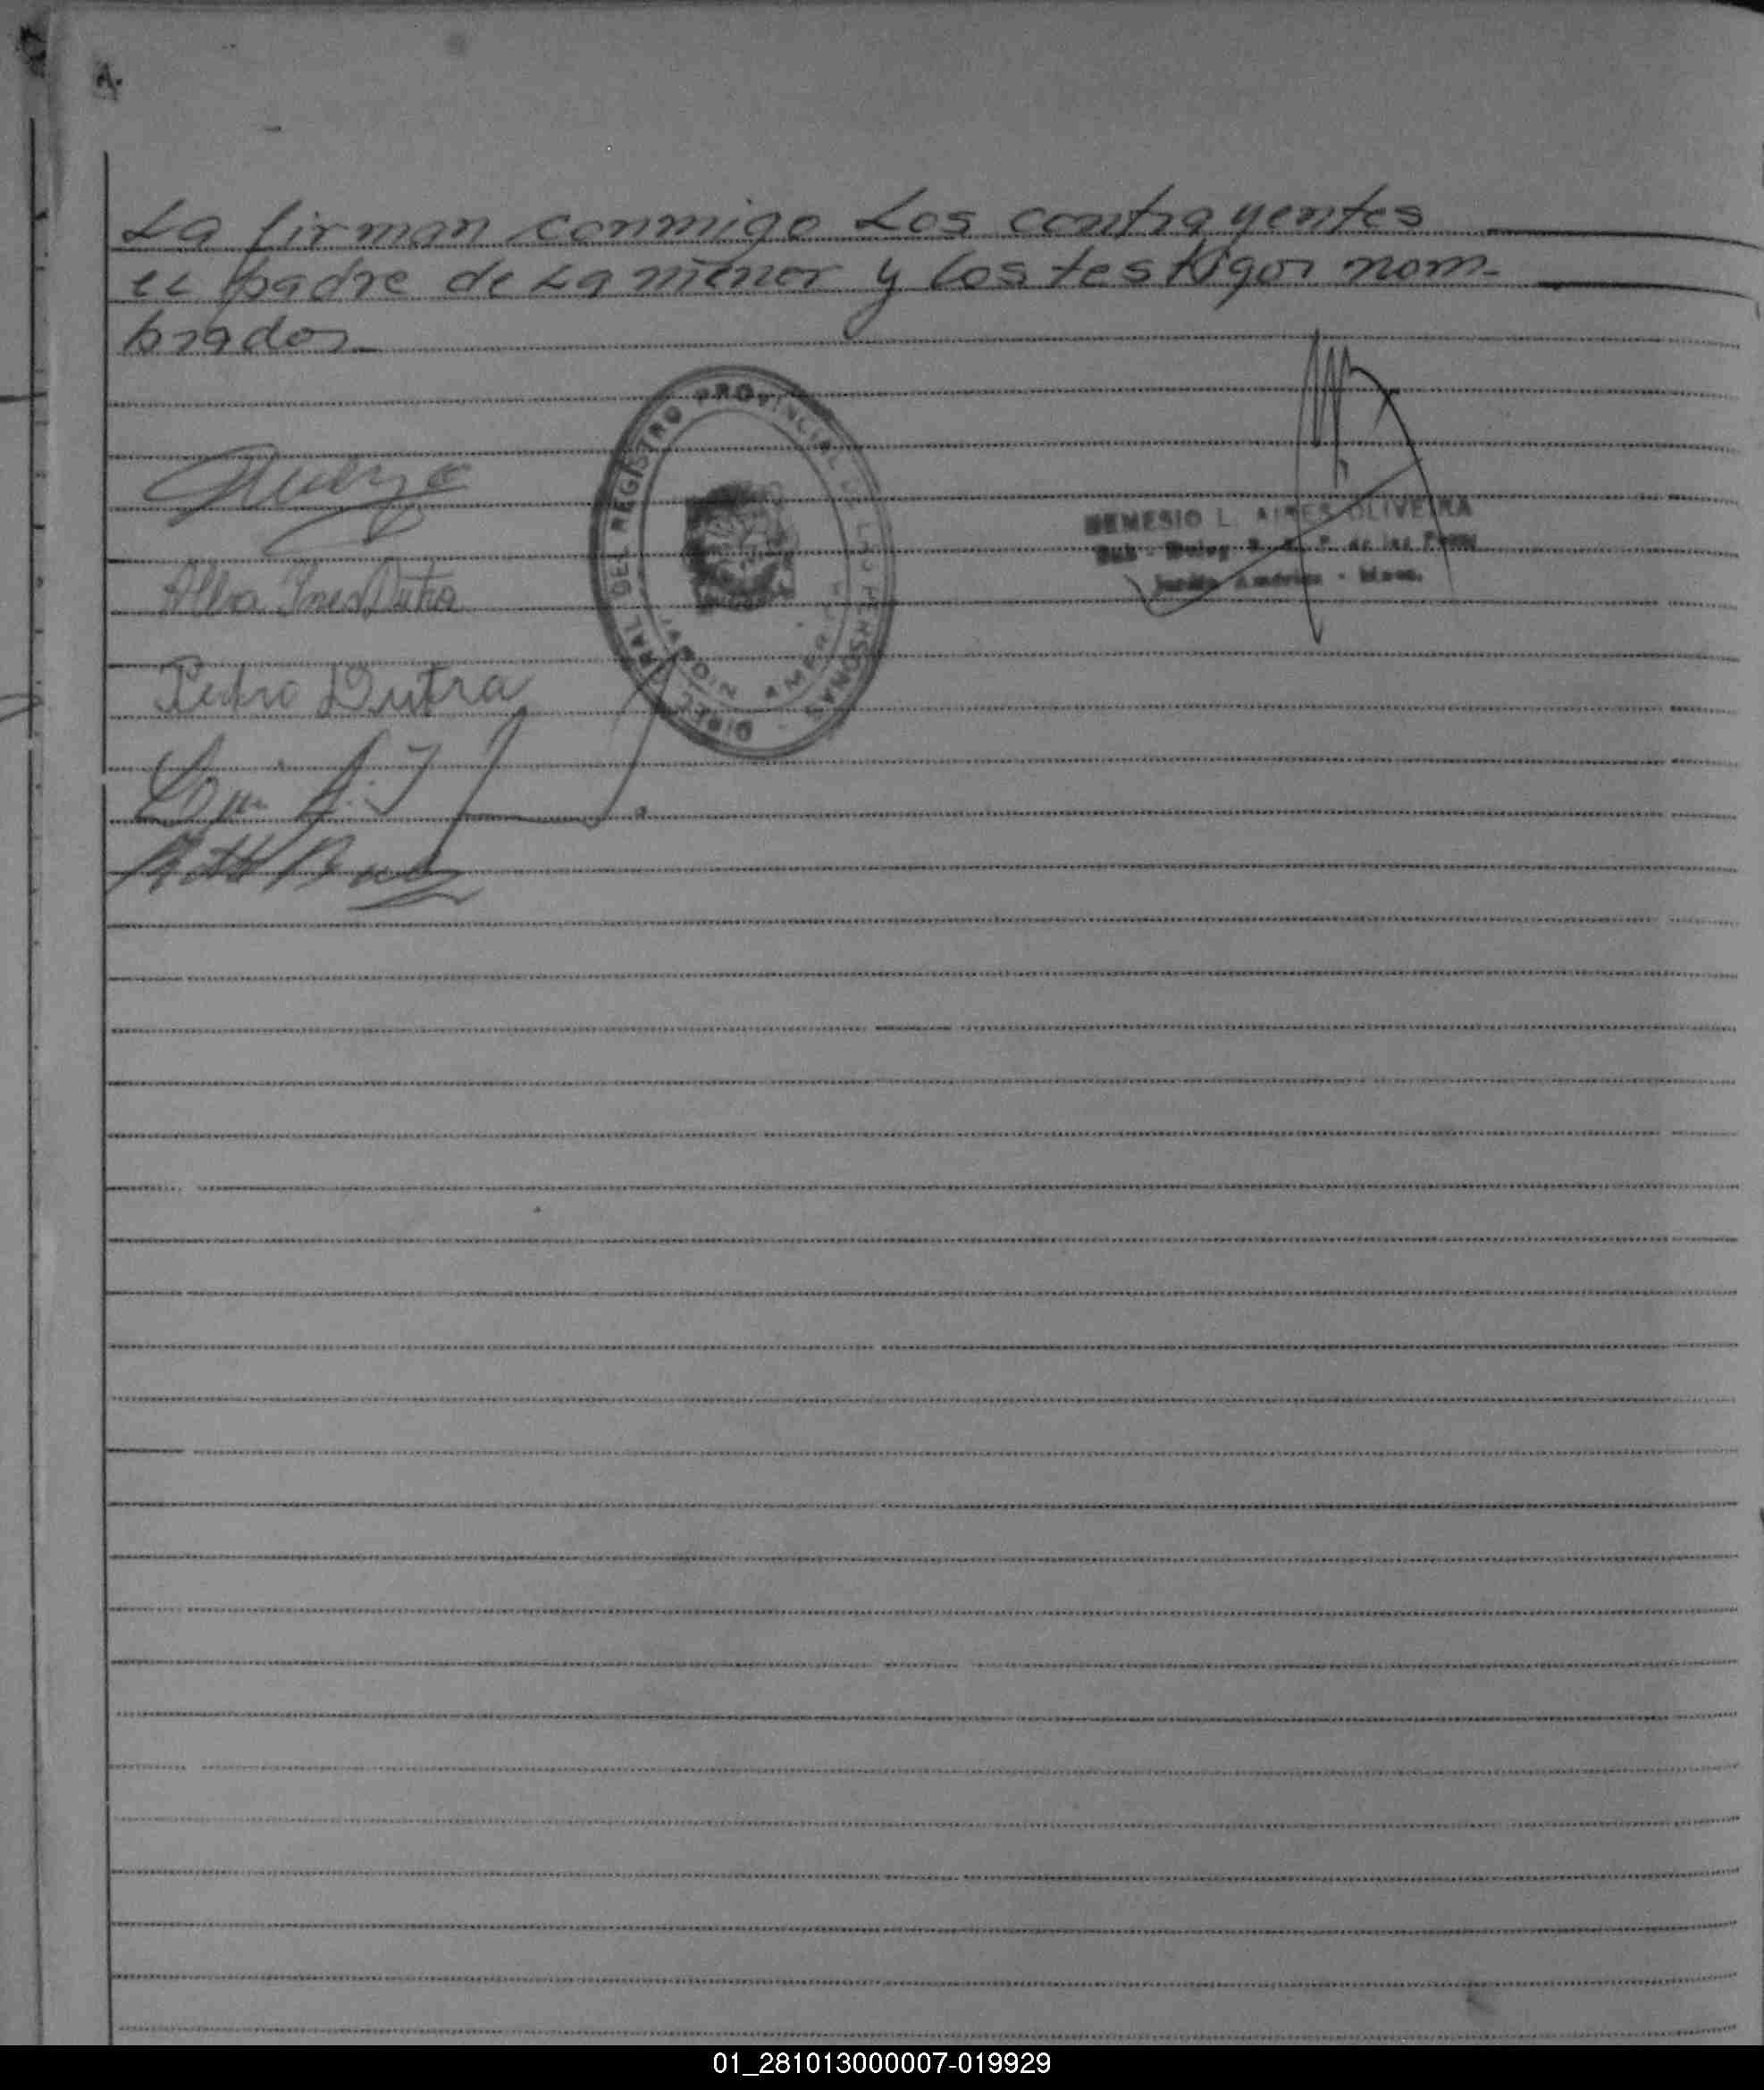 La firman conmigo Los contrayentes
el padre de La menor y los testigos nom-
brados
DIRECC GENERAL DEL REGISTRO PROVINCIAL DE LAS PERSONAS
AMERICA
NEMESIO L. AIRES OLIVEIRA
Sub - Deleg. R. P. de las Pers.
Jardín América - Mnes.
Alba Ines Dutra
Pedro Dutra
01_281013000007-019929